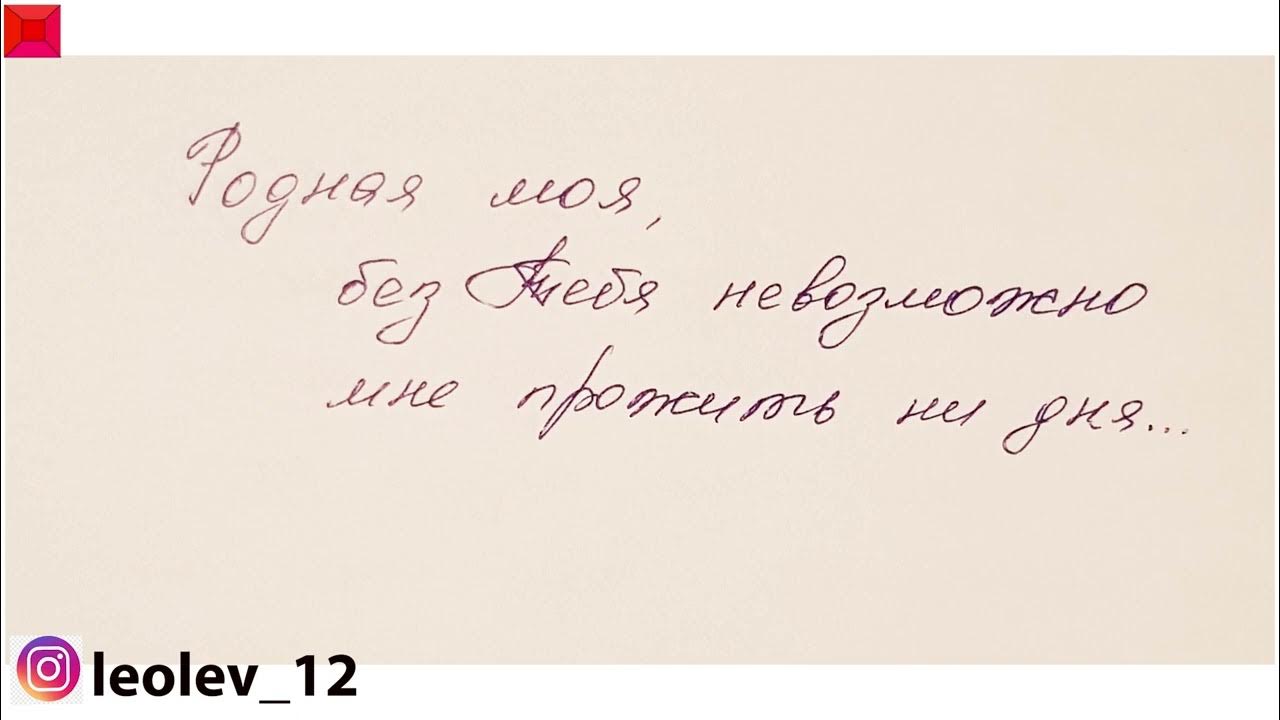 Родная моя,
без Тебя невозможно
мне прожить ни дня...
leolev_12